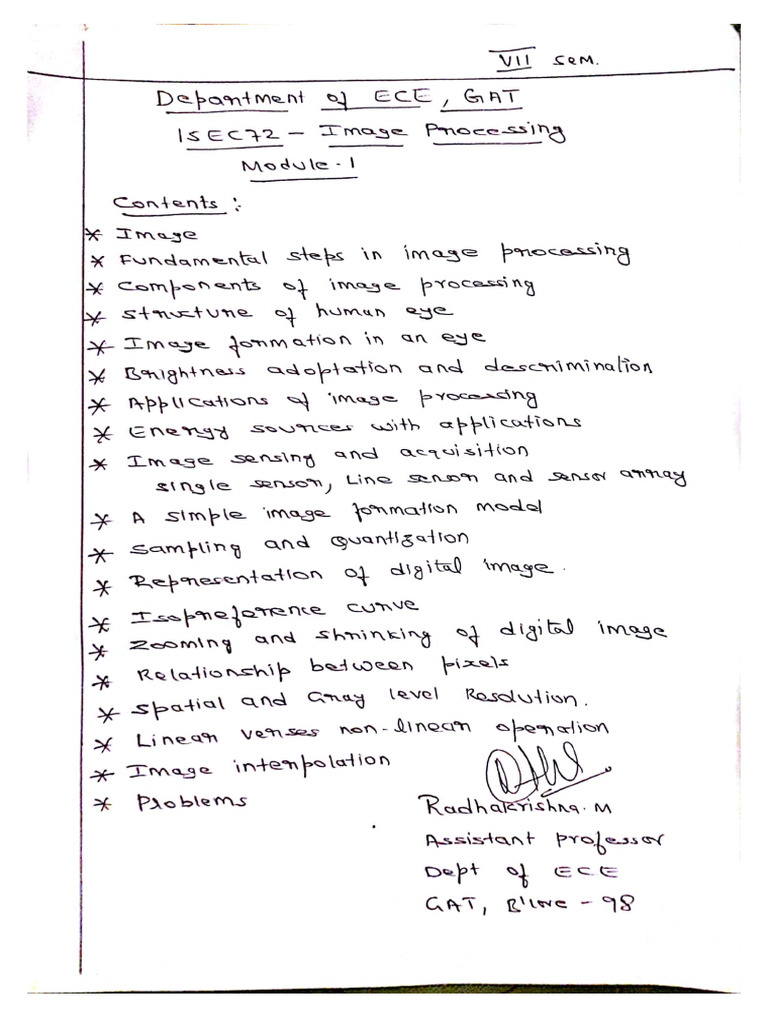 VII Sem.
Department of ECE, GAT
15EC72 - Image Processing
Module-1
Contents:
* Image
* Fundamental steps in image processing
* Components of image processing
* Structure of human eye
* Image formation in an eye
* Brightness adoptation and descrimination
* Applications of image processing
* Energy sources with applications
* Image sensing and acquisition
single sensor, Line sensor and sensor array
* A simple image formation model
* Sampling and Quantization
* Representation of digital image.
* Isopreference curve
* Zooming and shrinking of digital image
* Relationship between pixels
* Spatial and Gray level Resolution.
* Linear verses non-linear operation
* Image interpolation
* Problems
Radhakrishna.M
Assistant professor
Dept of ECE
GAT, B'lore - 98